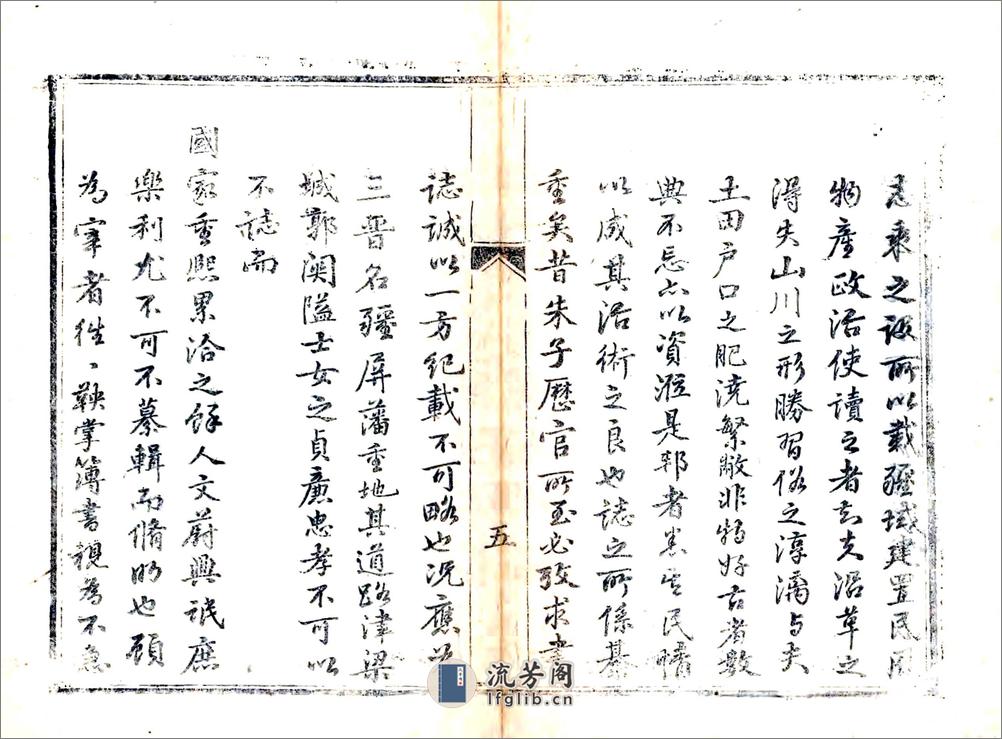 志乘之設所以載疆域建置民風
物產政治使讀之者知夫沿革之
得失山川之形勝習俗之淳漓与夫
土田户口之肥澆繁敝非特好古者數
典不忘亦以資涖是邦者悉其民情
以成其治術之良也誌之所係綦
重矣昔朱子歷官所至必攷求書
誌誠以一方紀載不可略也况應為
三晉名疆屏藩重地其道路津梁
城郭関隘士女之貞廉忠孝不可以
不誌而
國家重熙累洽之餘人文蔚興氓庶
樂利尤不可不纂輯而脩明也顧
為宰者徃丶鞅掌簿書視為不急
五
流芳阁
lfglib.cn